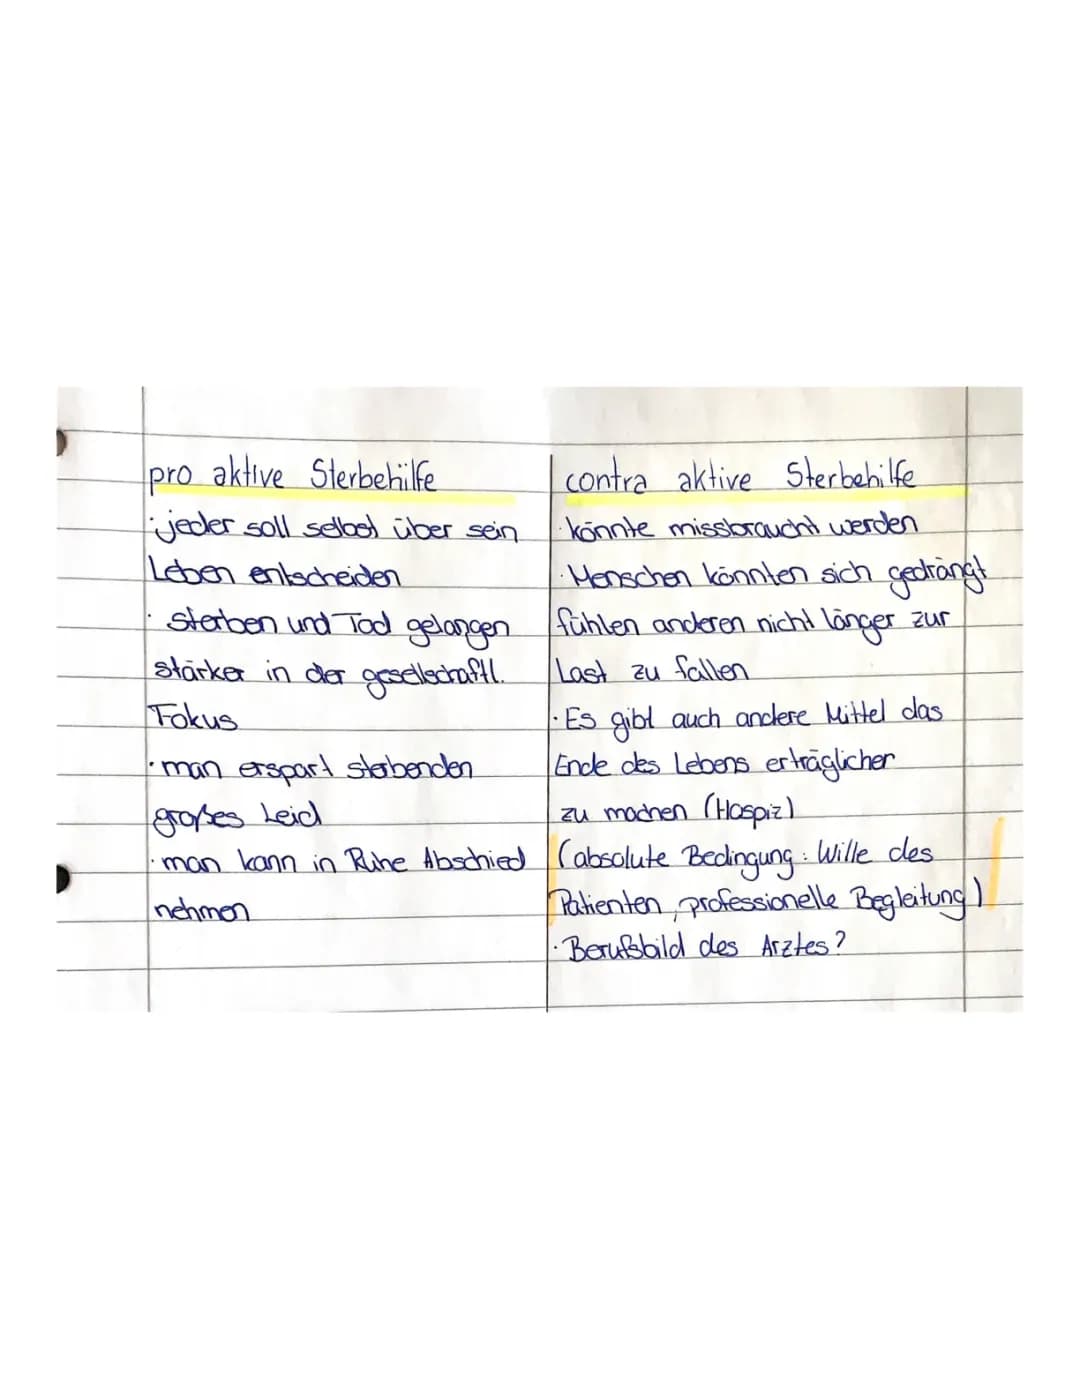 pro aktive Sterbehilfe
· jeder soll selbst über sein
Leben entscheiden
· sterben und Tod gelangen
stärker in der gesellschaftl.
Fokus
· man erspart sterbenden
großes Leid
· man kann in Ruhe Abschied
nehmen
contra aktive Sterbehilfe
· könnte missbraucht werden
· Menschen könnten sich gedrängt
fühlen anderen nicht länger zur
Last zu fallen
· Es gibt auch andere Mittel das
Ende des Lebens erträglicher
zu machen (Hospiz)
(absolute Bedingung: Wille des
Patienten, professionelle Begleitung)
· Berufsbild des Arztes?